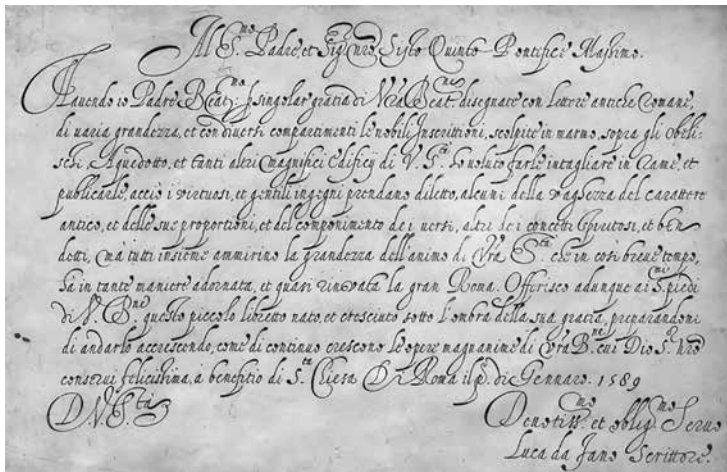 Al S.mo Padre, et Sig.r nro Sisto Quinto Pontifice Massimo.
Havendo io Padre Beat.mo p singolar gratia di Vra Beat.ne disegnate con lettere antiche Romane,
di varia grandezza, et con diversi compartimenti le nobili Inscrittioni, scolpite in marmo, sopra gli Obeli-
schi, Aquedotto, et tanti altri magnifici edificij di V. S.tà ho voluto farle intagliare in Rame, et
publicarle, acciò i virtuosi, et gentili ingegni prendano diletto, alcuni della vaghezza del carattere
antico, et delle sue proportioni, et del componimento de i versi, altri de i concetti spiritosi, et ben
detti, mà tutti insieme ammirino la grandezza dell'animo di Vra S.tà che in così breve tempo,
hà in tante maniere adornata, et quasi rinovata la gran Roma. Offerisco adunque ai S.mi piedi
di V. B.ne questo piccolo libretto nato, et cresciuto sotto l'ombra della sua gratia, preparandomi
di andarlo accrescendo, come di continuo crescono le opere magnanime di Vra B.ne cui Dio S.r nro
conservi felicissima, à benefitio di S.ta Chiesa Di Roma il p.o di Gennaro. 1589
D. V. S.tà
Devotiss.mo et oblig.mo Servo
Luca da Fano Scrittore.